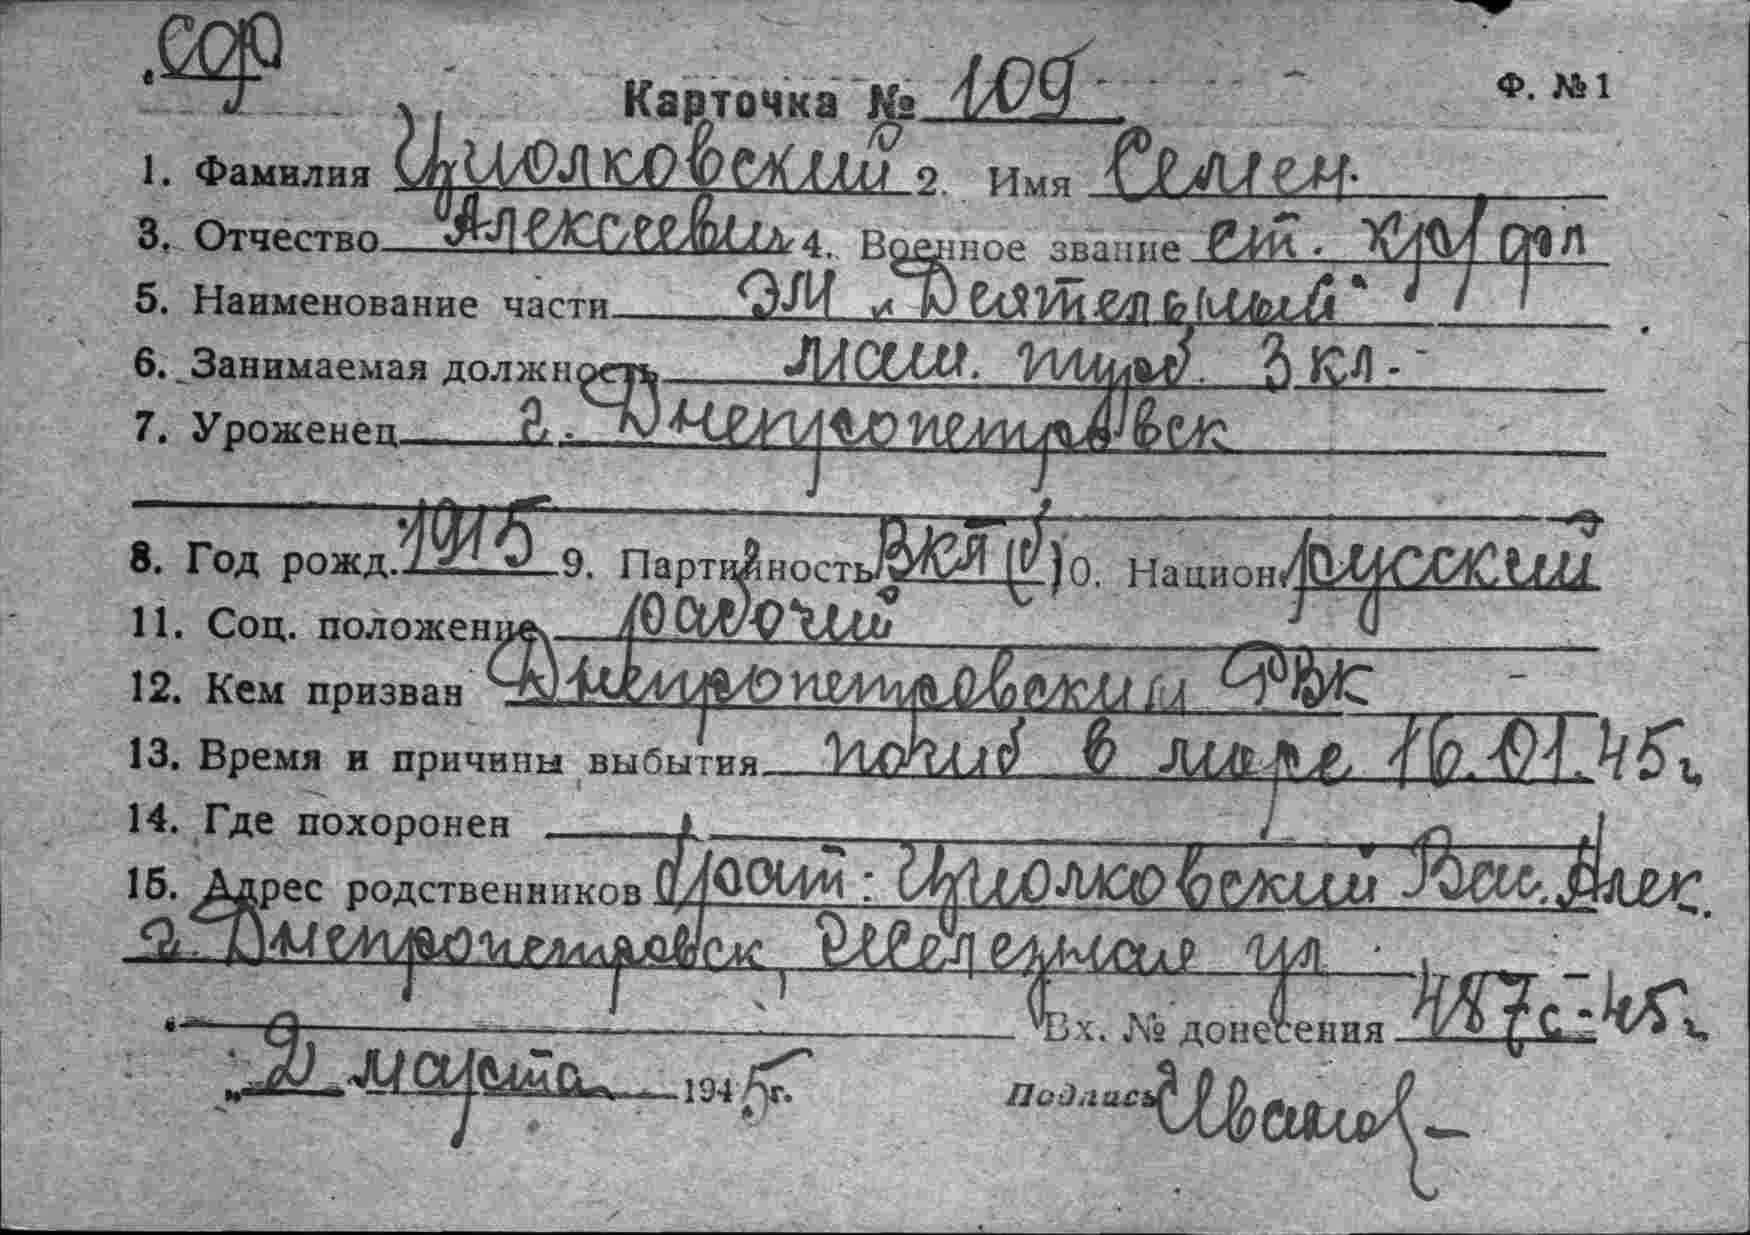 СФ
Карточка № 109 Ф. №1
1. Фамилия Циолковский 2. Имя Семен.
3. Отчество Алексеевич 4. Военное звание ст. кр/фл
5. Наименование части ЭМ „Деятельный"
6. Занимаемая должность маш. турб. 3 кл.
7. Уроженец г. Днепропетровск
8. Год рожд. 1915 9. Партийность ВКП(б) 10. Национ. русский
11. Соц. положение рабочий
12. Кем призван Днепропетровским РВК
13. Время и причины выбытия погиб в море 16.01.45г.
14. Где похоронен
15. Адрес родственников брат: Циолковский Вас. Алек.
г. Днепропетровск, Железная ул
Вх. № донесения 487с-45г.
„2 марта 1945г. Подпись Иванов